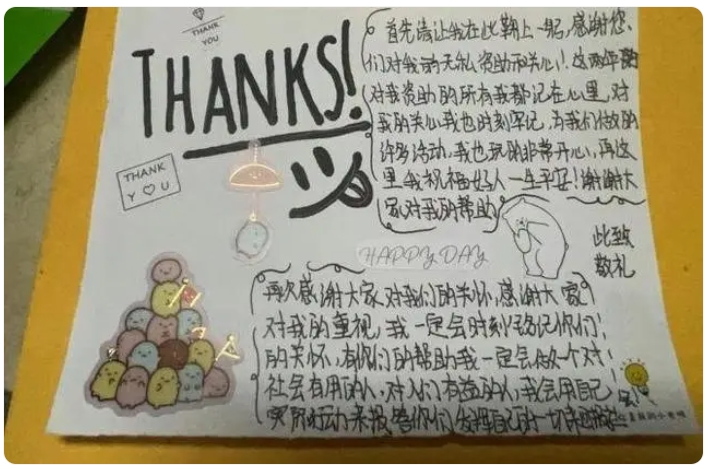 THANK
YOU
THANKS!
首先请让我在此鞠上一躬,感谢您
们对我的无私资助和关心!这两年
对我资助的所有我都记在心里,对
我的关心我也时刻牢记,为我们做的
许多活动,我也玩的非常开心,再这
里我祝福好人一生平安!谢谢大
家对我的帮助
此致
敬礼
THANK
Y U
HAPPY DAY
再次感谢大家对我们的关怀,感谢大家
对我的重视,我一定会时刻铭记你们
的关怀,有你们的帮助我一定会做一个对
社会有用的人,对人们有益的人,我会用自己
实际行动来报答你们,发挥自己的一切来